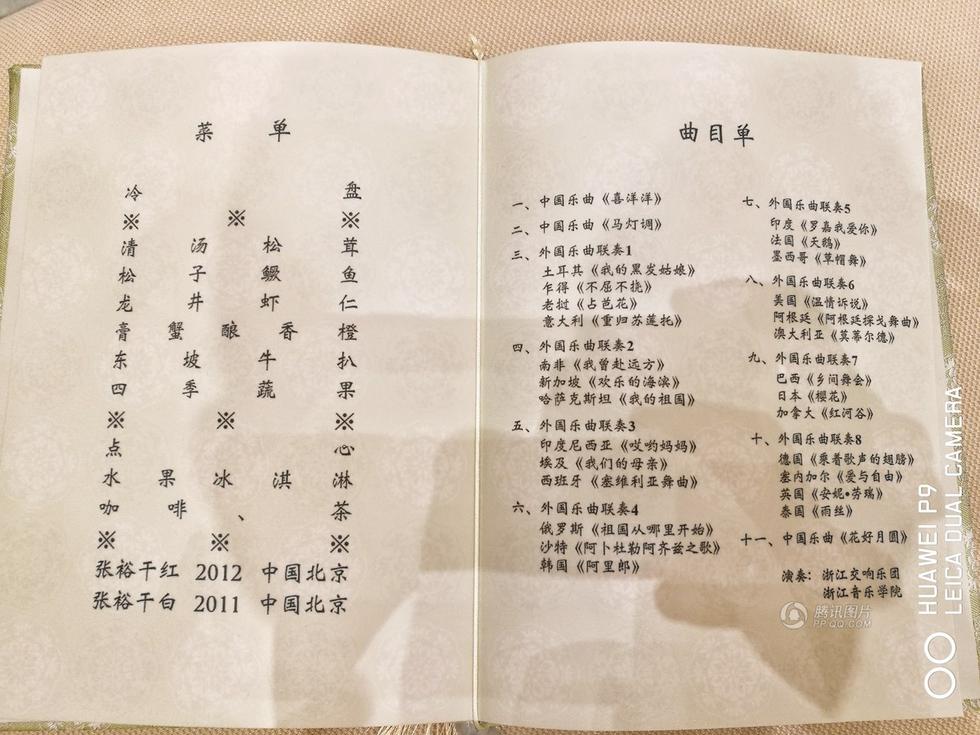 菜单
冷盘
※ ※ ※
清汤松茸
松子鳜鱼
龙井虾仁
膏蟹酿香橙
东坡牛扒
四季蔬果
※ ※ ※
点心
水果冰淇淋
咖啡、茶
※ ※ ※
张裕干红 2012 中国北京
张裕干白 2011 中国北京
曲目单
一、中国乐曲《喜洋洋》
二、中国乐曲《马灯调》
三、外国乐曲联奏1
土耳其《我的黑发姑娘》
乍得《不屈不挠》
老挝《占芭花》
意大利《重归苏莲托》
四、外国乐曲联奏2
南非《我曾赴远方》
新加坡《欢乐的海滨》
哈萨克斯坦《我的祖国》
五、外国乐曲联奏3
印度尼西亚《哎哟妈妈》
埃及《我们的母亲》
西班牙《塞维利亚舞曲》
六、外国乐曲联奏4
俄罗斯《祖国从哪里开始》
沙特《阿卜杜勒阿齐兹之歌》
韩国《阿里郎》
七、外国乐曲联奏5
印度《罗嘉我爱你》
法国《天鹅》
墨西哥《草帽舞》
八、外国乐曲联奏6
美国《温情诉说》
阿根廷《阿根廷探戈舞曲》
澳大利亚《莫蒂尔德》
九、外国乐曲联奏7
巴西《乡间舞会》
日本《樱花》
加拿大《红河谷》
十、外国乐曲联奏8
德国《乘着歌声的翅膀》
塞内加尔《爱与自由》
英国《安妮•劳瑞》
泰国《雨丝》
十一、中国乐曲《花好月圆》
演奏：浙江交响乐团
浙江音乐学院
腾讯图片
PP.QQ.COM
HUAWEI P9
LEICA DUAL CAMERA